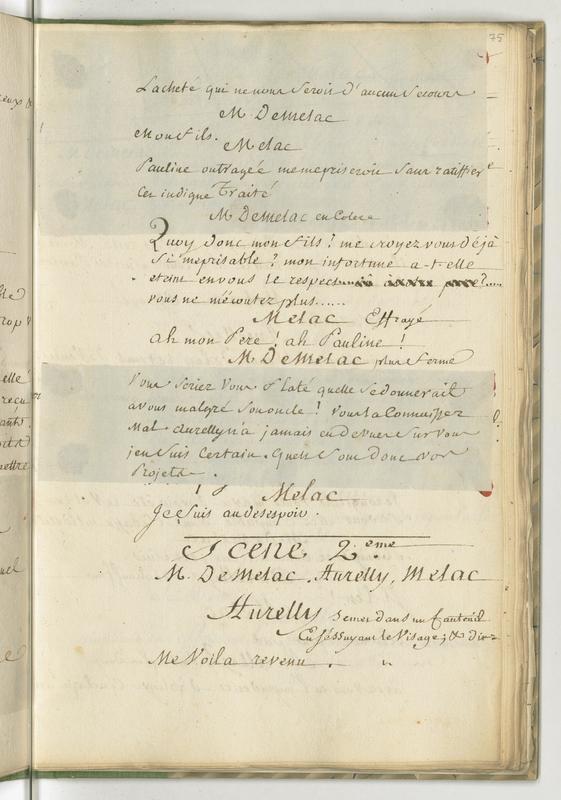 75
Lacheté qui ne nous seroit d'aucun secours
M. DeMelac
Mon fils.
Melac
Pauline outragée me mepriseroit sans ratiffier
Cet indigne Traité
M DeMelac en Colere
Quoy donc mon fils! me croyez vous déjà
si meprisable? mon infortune a-t-elle
eteint en vous le respect
vous ne m'écoutez plus......
Melac Effrayé
ah mon Pere! ah Pauline!
M. DeMelac plus ferme
Vous seriez vous flaté quelle se donnerait
a vous malgré son oncle! vous la Connaissez
Mal. Aurelly n'a jamais eu de vues sur vous
jen suis Certain. Quels sont donc vos
Projets.
Melac
Je suis au desespoir.
Scene 2.eme
M. DeMelac, Aurelly, Melac
Aurelly se met dans un fauteüil
En s'éssuyant le Visage; & dit
Me Voila revenu.